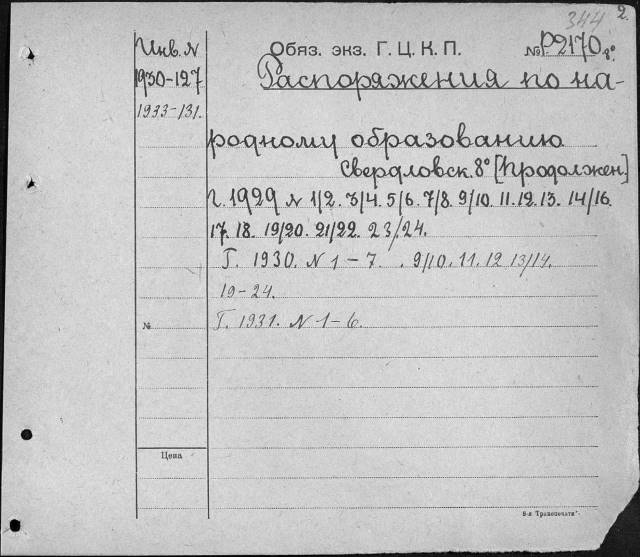 344 2.
Инв. N Обяз. экз. Г. Ц. К. П. № Р2170 8º
1930-127 Распоряжения по на-
1933-131.
родному образованию
Свердловск. 8º [Продолжен.]
Г. 1929 N 1/2. 3/4. 5/6. 7/8. 9/10. 11. 12. 13. 14/16.
17. 18. 19/20. 21/22. 23/24.
Г. 1930. N 1-7. . 9/10. 11. 12 13/14.
19-24.
№ Г. 1931. N 1-6.
Цена
8-я "Транспечати".